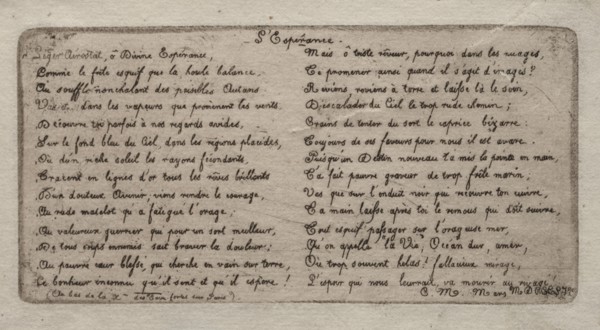 L'Espérance.
Léger Aérostat, ô Divine Espérance,
Comme le frêle esquif que la houle balance
Au souffle nonchalant des paisibles Autans
dans les vapeurs que promènent les vents.
Découvre toi parfois à nos regards avides,
Sur le fond bleu du Ciel, dans les régions placides,
Où d'un riche soleil les rayons fécondants,
en lignes d'or tous les rêves brillants
D'un douteux Avenir, viens rendre le courage,
Au rude matelot qu'a fatigué l'orage;
Au valeureux guerrier qui pour un sort meilleur,
De tous ennemis sait braver la douleur;
Au pauvre cœur blessé, qui cherche en vain sur terre,
Le bonheur inconnu qu'il sent et qu'il espère!
(Au bas de la
Mais ô triste rêveur, pourquoi dans les nuages,
Te promener ainsi quand il s'agit d'images?
Reviens, reviens à terre et laisse là le soin,
D'escalader du Ciel le trop rude chemin;
Crains de tenter du sort le caprice bizarre.
Toujours de ses faveurs pour nous il est avare.
Puisqu'un Destin nouveau t'a mis la pointe en main,
T'a fait pauvre graveur de trop frêle marin,
Vas que sur l'enduit noir qui recouvre ton cuivre,
Ta main laisse après toi le remous qui doit suivre,
Tout esquif passager sur l'orageuse mer,
Qu'on appella la Vie, Océan dur, amer,
Où trop souvent hélas! fallacieux mirage,
L'espoir qui nous leurrait va mourir au rivage!
C. M. Mars